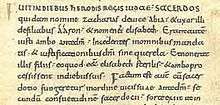 FUIT IN DIEBUS HERODIS REGIS IUDAEAE SACERDOS
quidam nomine zacharias de uice abia & uxor illi
de filiabus aaron & nomen eius elisabeth. Erant autem
iusti ambo ante dm incedentes in omnibus manda
tis & iustificationibus dni sine querela. & non erat
illis filius eo quod esset elisabeth sterilis & ambo pro
cessissent in diebus suis Factum est autem cum sacer
dotio fungeretur in ordine uicis suae ante dm se
cundum consuetudinem sacerdotii sorte